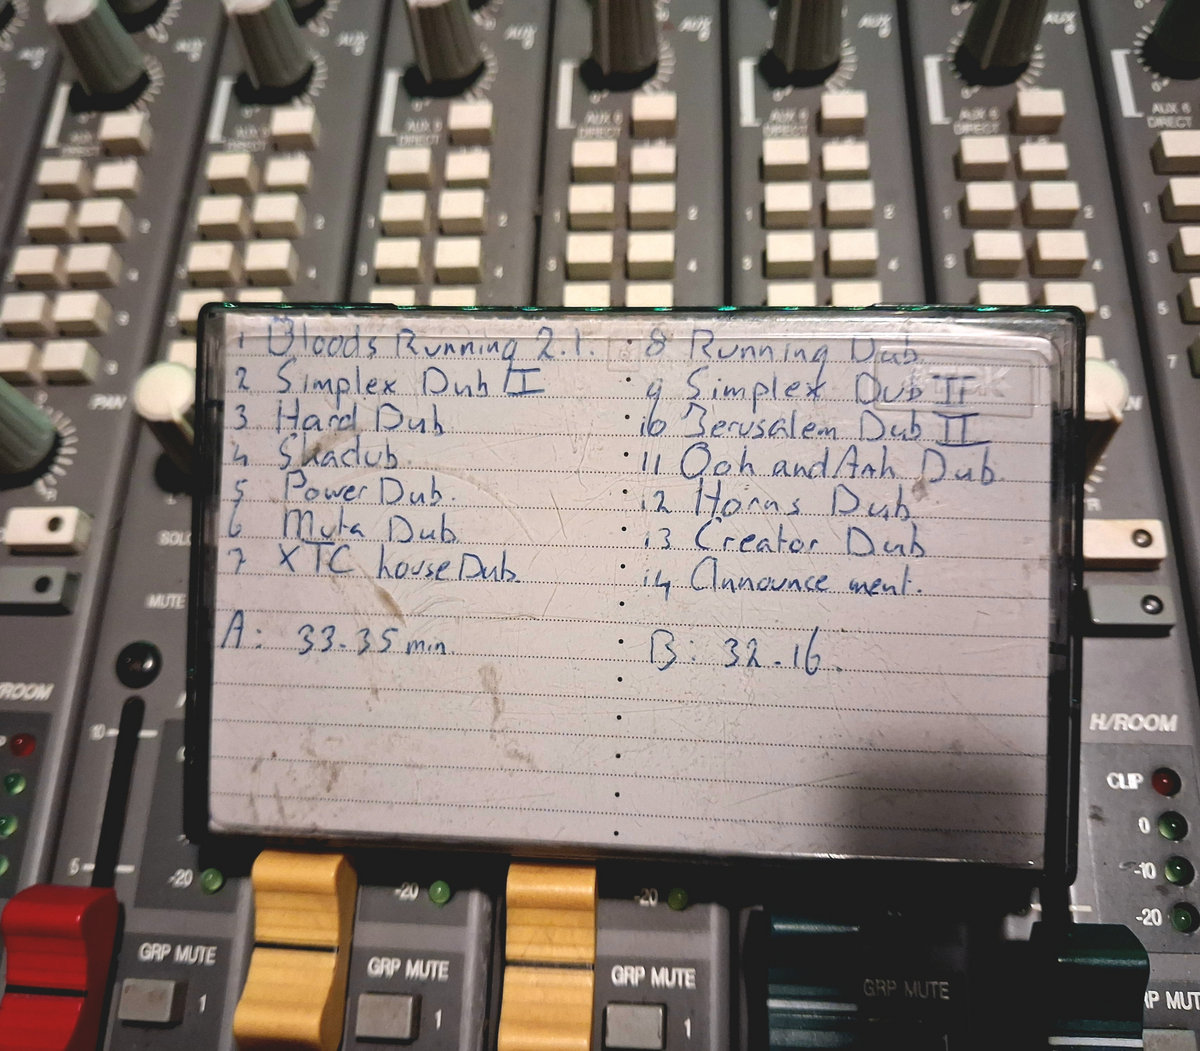 AUX 6
AUX 6
AUX 6
AUX 6
AUX 6
AUX 6
AUX 6 DIRECT
AUX 6 DIRECT
AUX 6 DIRECT
AUX 6 DIRECT
AUX 6 DIRECT
PAN
SOLO
MUTE
1 Bloods Running 2.1.
2 Simplex Dub II
3 Hard Dub
4 Skadub.
5 Power Dub.
6 Muta Dub
7 XTC house Dub.
A: 33.35 min.
8 Running Dub.
9 Simplex Dub II
10 Jerusalem Dub II
11 Ooh and Aah Dub.
12 Horns Dub
13 Creator Dub
14 Announcement.
B: 32.16.
H/ROOM
CLIP
0
-10
-20
10
5
-20
-20
-20
GRP MUTE
1
GRP MUTE
1
GRP MUTE
1
GRP MUTE